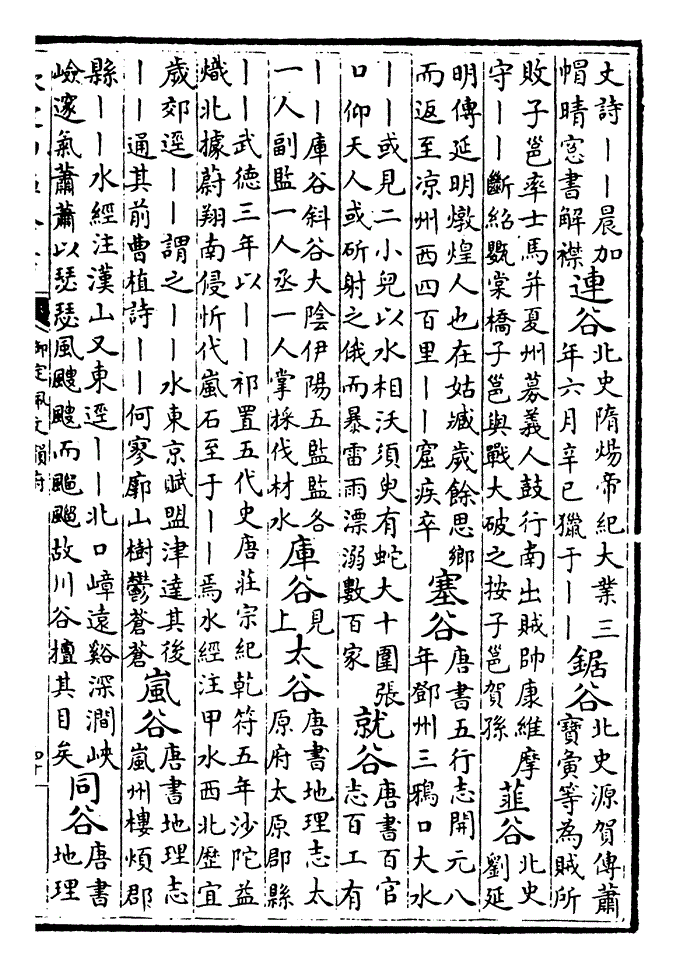 文詩｜｜晨加
帽晴窓書解襟
連谷
北史隋煬帝紀大業三
年六月辛已獵于｜｜
鋸谷
北史源賀傳蕭
寶夤等為賊所
敗子邕率士馬并夏州募義人鼓行南出賊帥康維摩
守｜｜斷紹甄棠橋子邕與戰大破之按子邕賀孫
韮谷
北史
劉延
明傳延明燉煌人也在姑臧歲餘思鄉
而返至凉州西四百里｜｜窟疾卒
塞谷
唐書五行志開元八
年鄧州三鴉口大水
｜｜或見二小兒以水相沃須臾有蛇大十圍張
口仰天人或斫射之俄而暴雷雨漂溺數百家
就谷
唐書百官
志百工有
｜｜庫谷斜谷大陰伊陽五監監各
一人副監一人丞一人掌採伐材水
庫谷
見
上
太谷
唐書地理志太
原府太原郡縣
｜｜武德三年以｜｜祁置五代史唐莊宗紀乾符五年沙陀益
熾北據蔚翔南侵忻代嵐石至于｜｜焉水經注甲水西北歷宜
歲郊逕｜｜謂之｜｜水東京賦盟津達其後
｜｜通其前曹植詩｜｜何寥廓山樹鬱蒼蒼
嵐谷
唐書地理志
嵐州樓煩郡
縣｜｜水經注漢山又東逕｜｜北口嶂遠谿深澗峽
嶮邃氣蕭蕭以瑟瑟風颼颼而飀飀故川谷擅其目矣
同谷
唐書
地理
御定佩文韻府